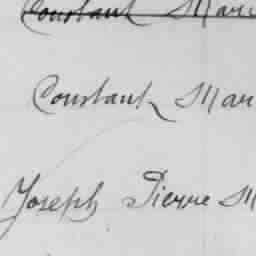 Constant Mar
Constant Mar
Joseph Pierre M